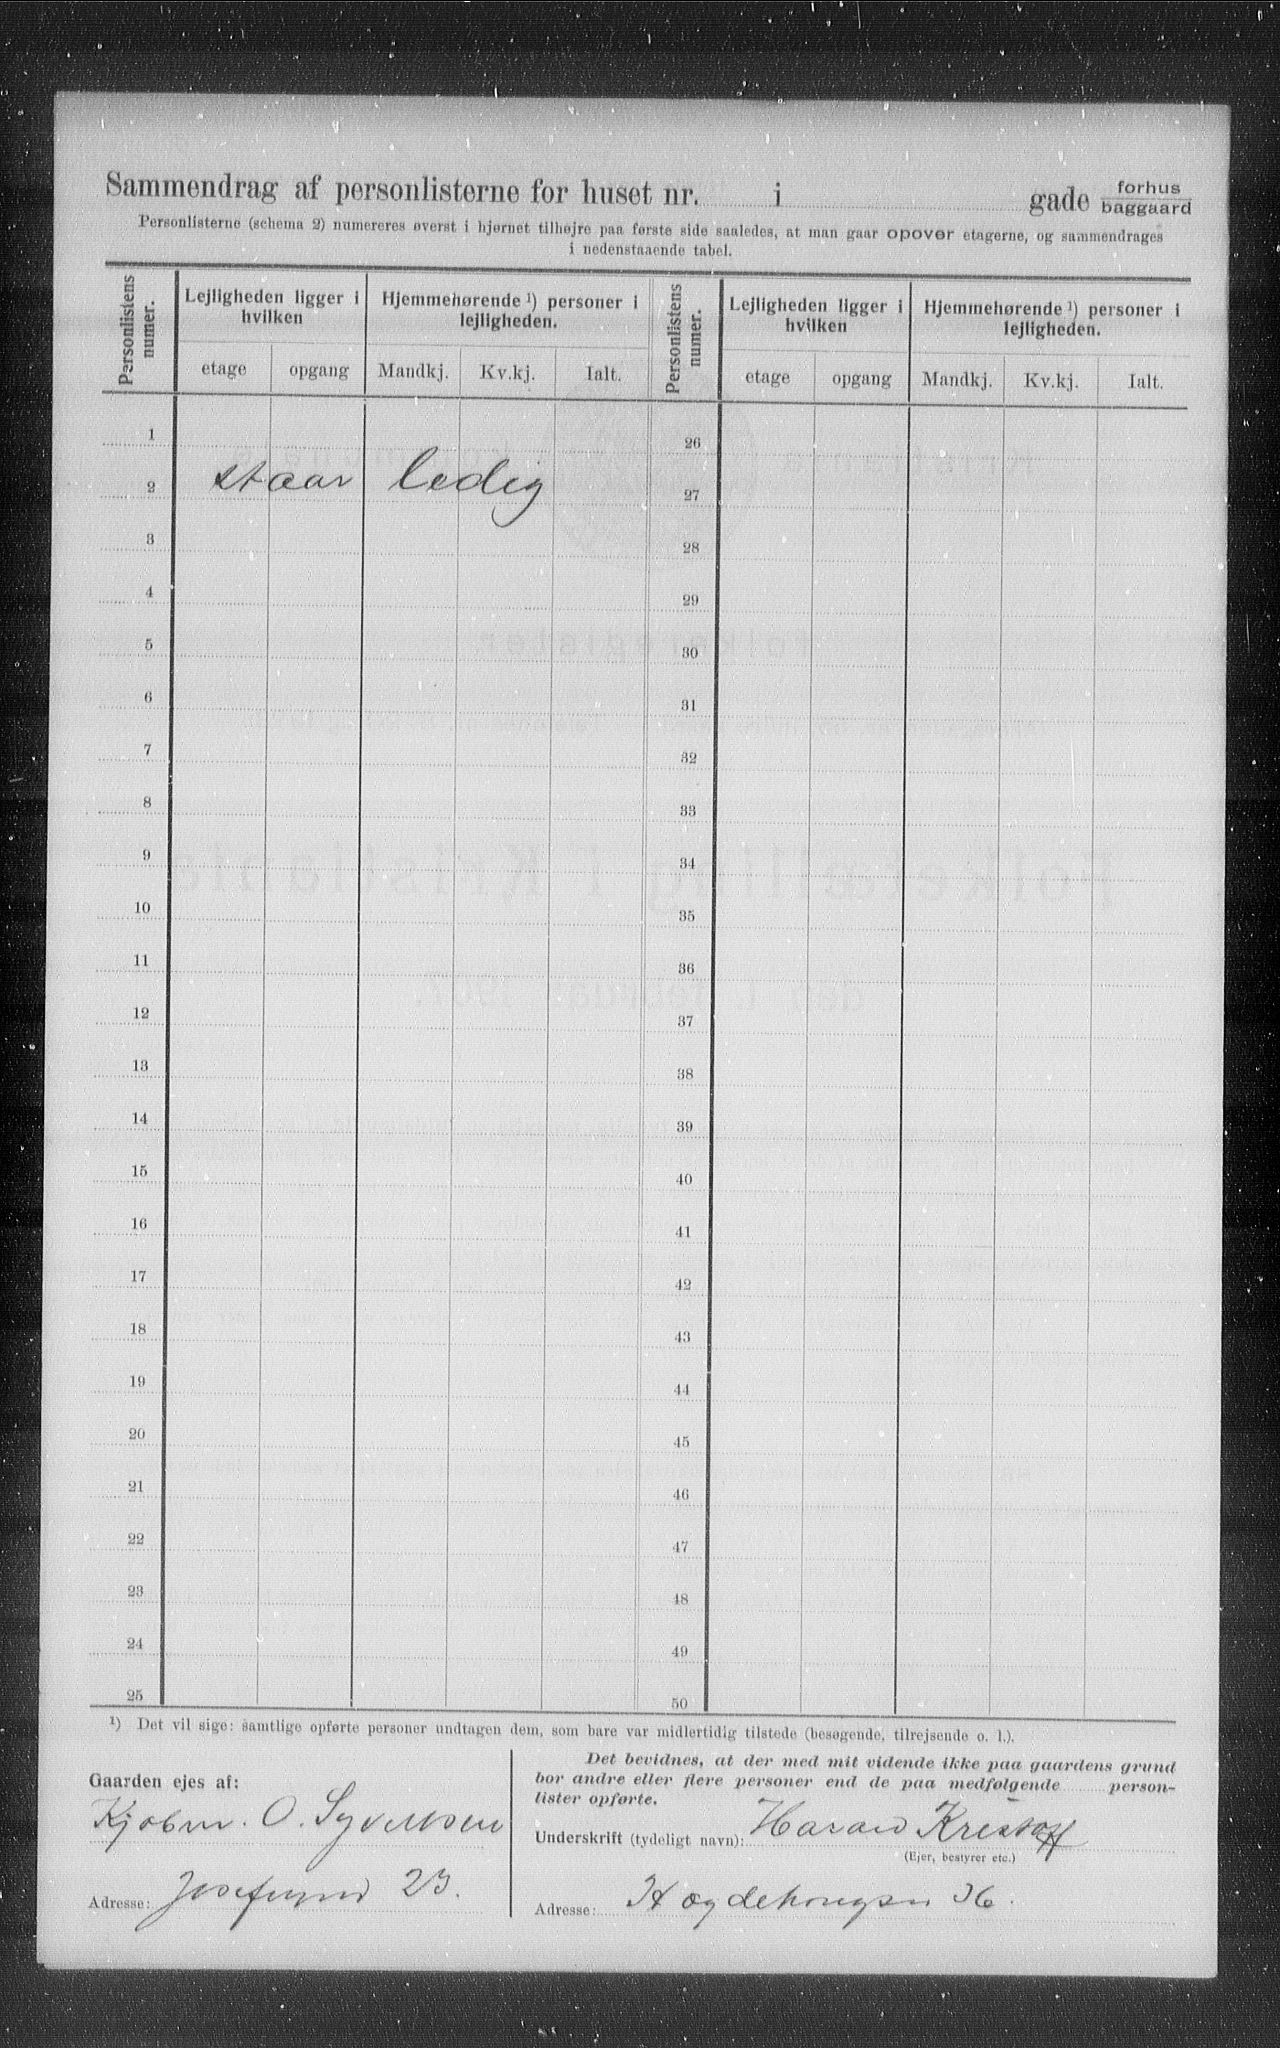 Sammendrag af personlisterne for huset nr. i gade forhus baggaard
Personlisterne (schema 2) numereres øverst i hjørnet tilhøjre paa første side saaledes, at man gaar opover etagerne, og sammendrages
i nedenstaaende tabel.
Personlistens numer. Lejligheden ligger i hvilken Hjemmehørende ¹) personer i lejligheden. Personlistens numer. Lejligheden ligger i hvilken Hjemmehørende ¹) personer i lejligheden.
etage opgang Mandkj. Kv.kj. Ialt. etage opgang Mandkj. Kv.kj. Ialt.
1 26
2 staar ledig 27
3 28
4 29
5 30
6 31
7 32
8 33
9 34
10 35
11 36
12 37
13 38
14 39
15 40
16 41
17 42
18 43
19 44
20 45
21 46
22 47
23 48
24 49
25 50
¹) Det vil sige: samtlige opførte personer undtagen dem, som bare var midlertidig tilstede (besøgende, tilrejsende o. l.).
Gaarden ejes af:
Kjøbm. O. Syvertsen
Adresse: Josefinegd 23.
Det bevidnes, at der med mit vidende ikke paa gaardens grund
bor andre eller flere personer end de paa medfølgende person-
lister opførte.
Underskrift (tydeligt navn): Harald Kristoff
(Ejer, bestyrer etc.)
Adresse: Hægdehougsn 36.